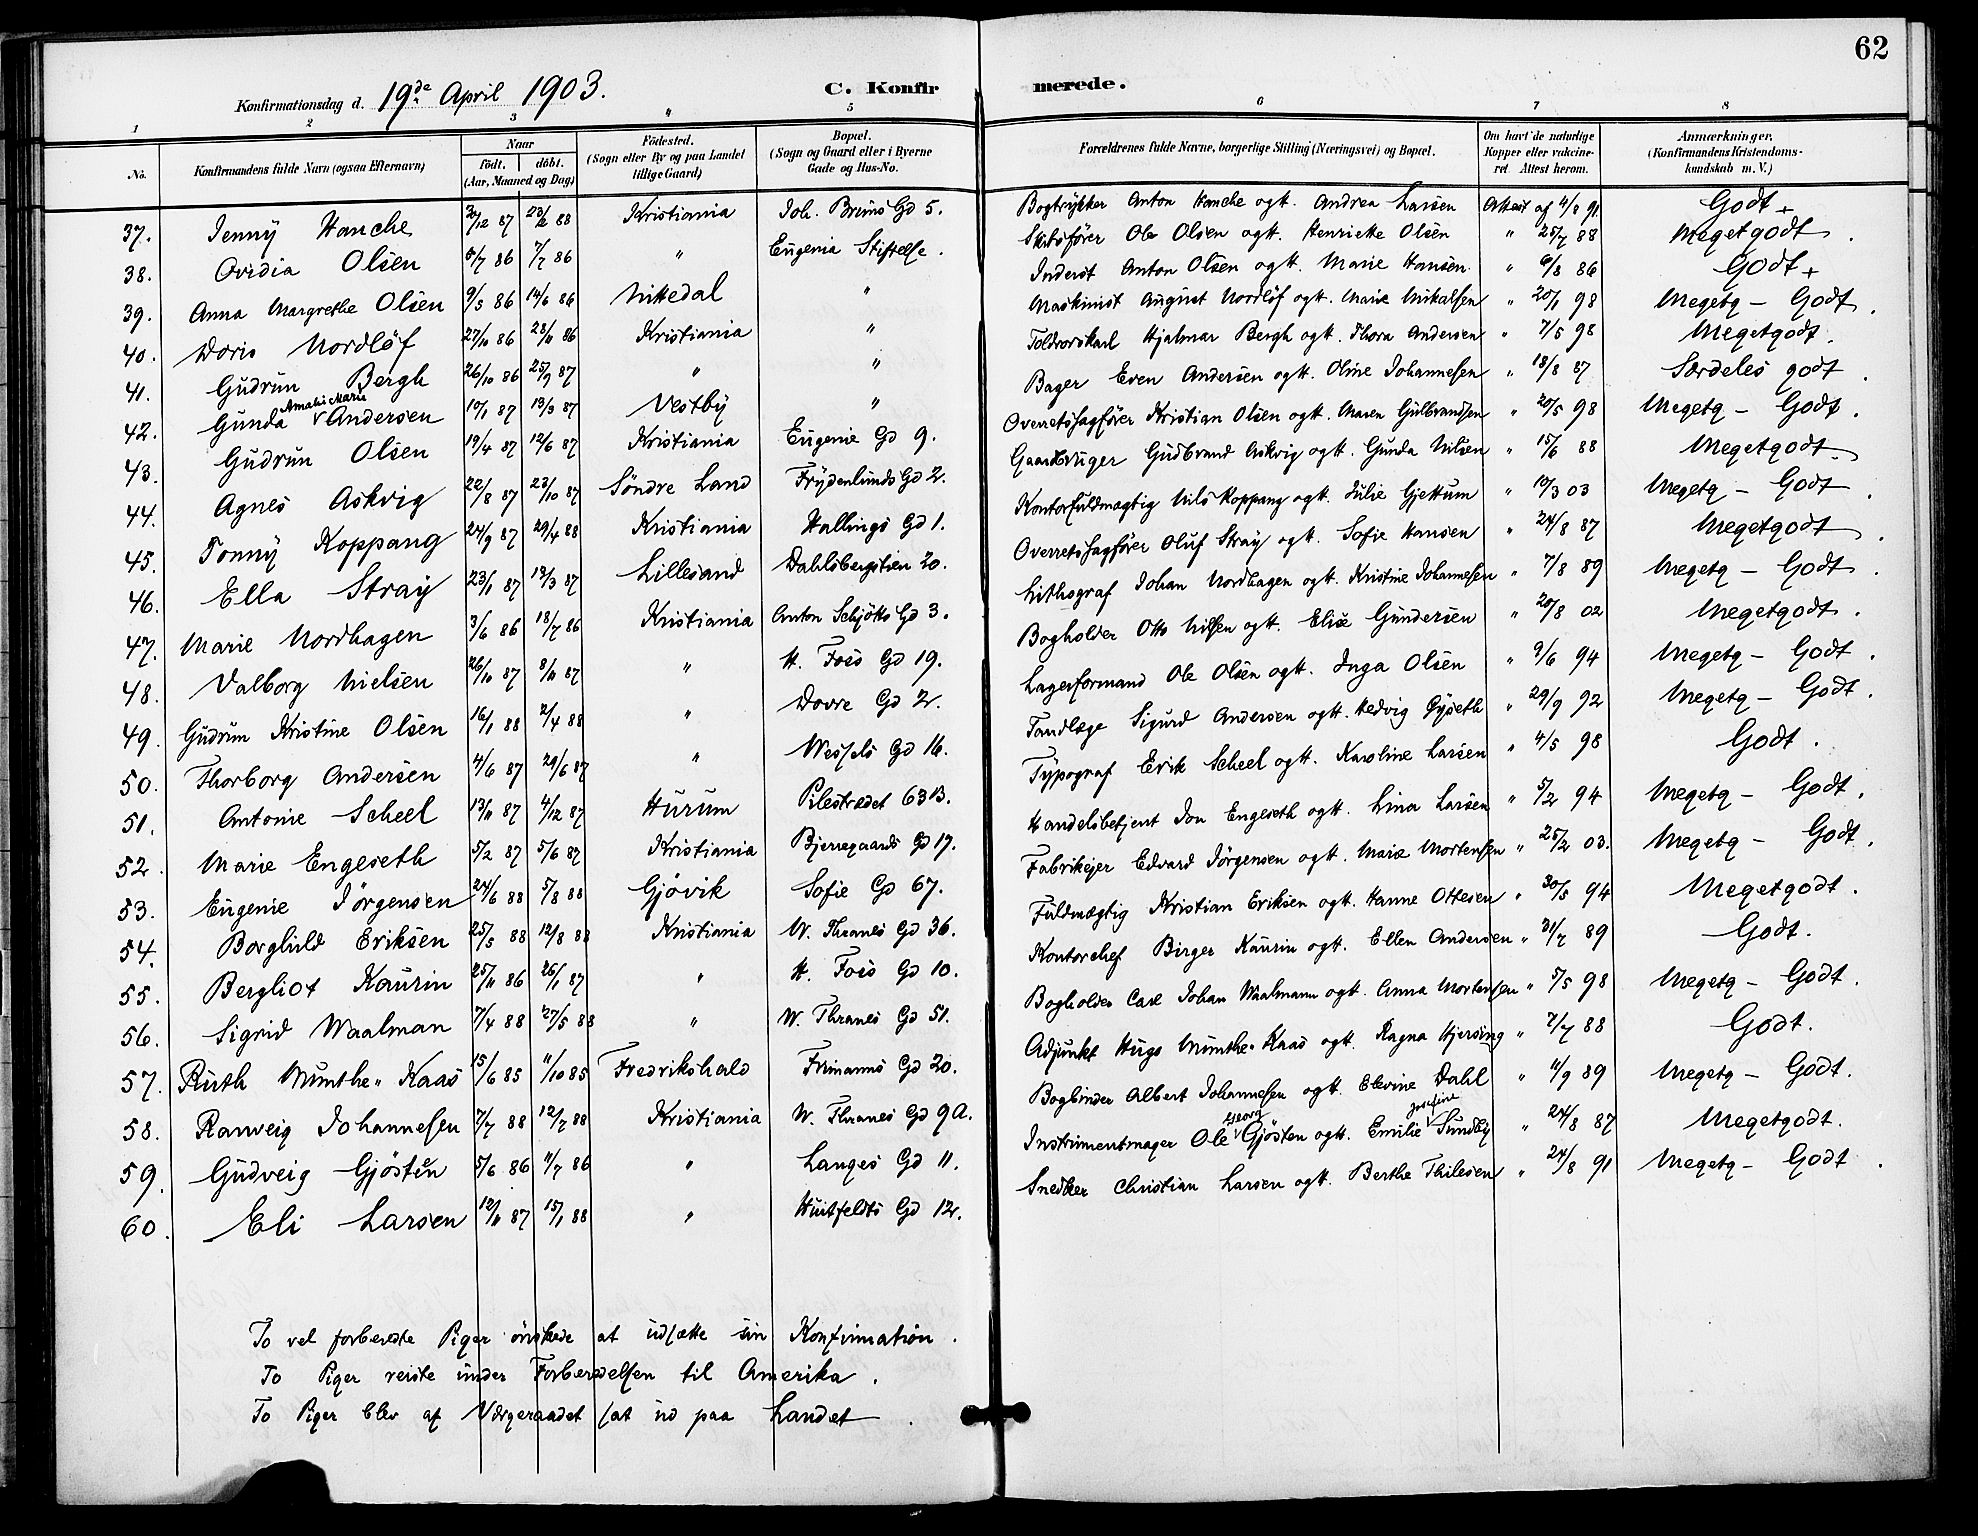 62
Konfirmationsdag d. 19de April 1903. C. Konfirmerede.
1 2 3 " 5 6 7 8
No. Konfirmandens fulde Navn (ogsaa Efternavn) Naar født. døbt. (Aar, Maaned og Dag) Fødested. (Sogn eller By og paa Landet tillige Gaard) Bopæl. (Sogn og Gaard eller i Byerne Gade og Hus-No. Forældrenes fulde Navne, borgerlige Stilling (Næringsvei) og Bopæl. Om havt de naturlige Kopper eller vakcineret. Attest herom. Anmærkninger. (Konfirmandens Kristendomskundskab m. V.)
37. Jenny Hanche /12 87 88 Kristiania Joh. Bruns Gd 5. Bogtrykker Anton Hanche ogH. Andrea Larsen Attest af 4/8 91 Godt +
38. Ovidia Olsen 5/7 86 7/7 86 " Eugenia Stiftelse. Skibsfører Ole Olsen ogH. Henriette Olsen " 25/7 88 Megetgodt.
39. Anna Margrethe Olsen 9/5 86 14/6 86 Nittedal " Inderst Anton Olsen ogH. Marie Hansen " 6/8 86 Godt +
40. Doris Nordlöf 27/10 86 28/11 86 Kristiania " Maskinist August Nordlöf ogH. Marie Mikalsen " 20/1 98 Megetg - Godt.
41. Gudrun Bergh 26/10 86 25/9 87 " " Toldrorskarl Hjalmar Bergh ogH. Thora Andersen " 7/5 98 Megetgodt.
42. Gunda Amalie Marie Andersen 10/1 87 13/3 87 Vestby " Bager Even Andersen ogH. Oline Johannesen " 18/8 87 Særdeles godt.
43. Gudrun Olsen 19/4 87 12/6 87 Kristiania Eugenie Gd 9. Overretssagfører Kristian Olsen ogH. Maren Gulbrandsen " 20/5 98 Megetg - Godt.
44. Agnes Askvig 22/8 87 23/10 87 Söndre Land Frydenlunds Gd 2. Gaardbruger Gudbrand Askvig ogH. Gunda Nilsen " 15/6 88 Megetgodt.
45. Tonny Koppang 24/9 87 29/4 88 Kristiania Hallings Gd 1. Kontorfuldmægtig Nils Koppang ogH. Julie Gjettum " 19/3 03 Megetg - Godt.
46. Ella Stray 23/1 87 13/3 87 Lillesand Dahlsbergstien 20. Overretssagfører Oluf Stray ogH. Sofie Hansen " 24/8 87 Megetgodt.
47. Marie Nordhagen 3/6 86 18/7 86 Kristiania Anton Schjötts Gd 3. Lithograf Johan Nordhagen ogH. Kristine Johannesen " 7/8 89 Megetg - Godt.
48. Valborg Nielsen 26/10 87 8/11 87 " H. Foss Gd 19. Bogholder Otto Nilsen ogH. Elise Gundersen " 20/8 02 Megetgodt.
49. Gudrun Kristine Olsen 16/1 88 2/4 88 " Dovre Gd 2. Lagerformand Ole Olsen ogH. Inga Olsen " 9/6 94 Megetg - Godt.
50. Thorborg Andersen 4/6 87 29/6 87 " Wessels Gd 16. Tandlæge Sigurd Andersen ogH. Hedvig Gyseth " 29/9 92 Megetg - Godt.
51. Antonie Scheel 13/11 87 4/12 87 Hurum Pilestrædet 63 B. Typograf Erik Scheel ogH. Karoline Larsen " 4/5 98 Godt.
52. Marie Engeseth 5/2 87 5/6 87 Kristiania Bjerregaards Gd 17. Handelsbetjent Jon Engeseth ogH. Lina Larsen " 5/2 94 Megetg - Godt.
53. Eugenie Jörgensen 24/6 88 5/8 88 Gjövik Sofie Gd 67. Fabrikejer Edvard Jörgensen ogH. Marie Mortensen " 25/2 03. Megetg - Godt.
54. Borghild Eriksen 25/5 88 12/8 88 Kristiania W. Thranes Gd 36. Fuldmægtig Kristian Eriksen ogH. Hanne Ottesen " 30/5 94 Megetgodt.
55. Bergliot Kaurin 25/11 86 26/1 87 " H. Foss Gd 10. Kontorchef Birger Kaurin ogH. Ellen Andersen " 31/7 89 Godt.
56. Sigrid Waalman 7/4 88 27/5 88 " W. Thranes Gd 51. Bogholder Carl Johan Waalmann ogH. Anna Mortensen " 5/5 98 Megetg - Godt.
57. Ruth Munthe-Kaas 15/6 85 11/10 85 Fredrikshald Frimanns Gd 20. Adjunkt Hugo Munthe-Kaas ogH. Ragna Hjersing " 7/7 88 Godt.
58. Ranveig Johannesen 7/7 88 12/7 88 Kristiania W. Thranes Gd 9 A. Bogbinder Albert Johannesen ogH. Elevine Dahl " 11/9 89 Megetg - Godt.
59. Gudveig Gjösten 5/6 86 11/7 86 " Langes Gd 11. Instrumentmager Ole Georg Gjösten ogH. Emilie Josefine Sundby " 24/8 87 Megetgodt.
60. Eli Larsen 12/11 87 15/1 88 " Huitfeldts Gd 12. Snedker Christian Larsen ogH. Berthe Thilesen " 24/8 91 Megetg - Godt.
To vel forberedte Piger önskede at udsætte sin Konfirmation.
To Piger reiste under Forberedelsen til Amerika.
To Piger blev af Værgeraadet sat ud paa Landet.